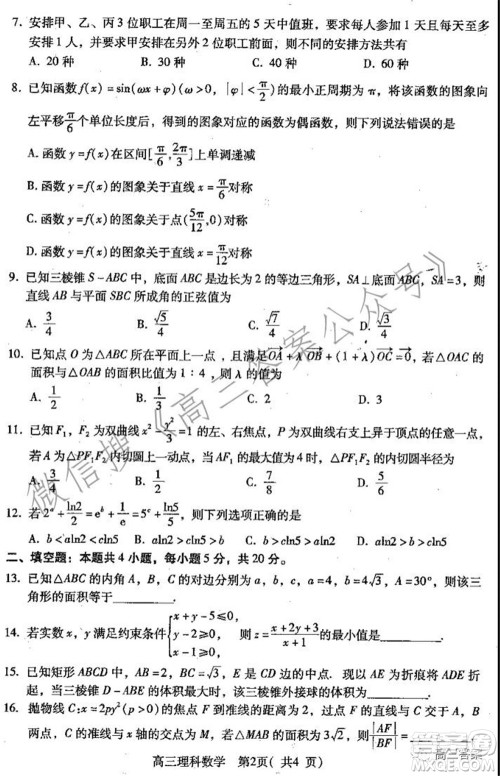 7. 安排甲、乙、丙3位职工在周一至周五的5天中值班，要求每人参加1天且每天至多
安排1人，并要求甲安排在另外2位职工前面，则不同的安排方法共有
A. 20种 B. 30种 C. 40种 D. 60种
8. 已知函数f(x)=sin(ωx+φ)(ω>0, |φ|<π/2)的最小正周期为π，将该函数的图象向
左平移π/6个单位长度后，得到的图象对应的函数为偶函数，则下列说法错误的是
A. 函数y=f(x)在区间[π/6, 2π/3]上单调递减
B. 函数y=f(x)的图象关于直线x=π/6对称
C. 函数y=f(x)的图象关于点(5π/12,0)对称
D. 函数y=f(x)的图象关于直线x=π/6对称
9. 已知三棱锥S-ABC中，底面ABC是边长为2的等边三角形，SA⊥底面ABC, SA=3，则
直线AB与平面SBC所成角的正弦值为
A. 3/4 B. √5/4 C. √7/4 D. √3/4
10. 已知点O为△ABC所在平面上一点，且满足OA+λOB+(1+λ)OC=0，若△OAC的
面积与△OAB的面积比值为1:4，则λ的值为
A. 1/2 B. 1/3 C. 2 D. 3
11. 已知F₁, F₂为双曲线x²-y²/3=1的左、右焦点，P为双曲线右支上异于顶点的任意一点，
若A为△PF₁F₂内切圆上一动点，当AF₁的最大值为4时，△PF₁F₂的内切圆半径为
A. 3/4 B. 4/3 C. 7/8 D. 5/6
12. 若2ᵃ+ln2/2=eᵇ+1/e=5ᶜ+ln5/5，则下列选项正确的是
A. aln2>b B. b<cln5 C. b>cln5>aln2 D. aln2>b>cln5
二、填空题：本题共4小题，每小题5分，共20分。
13. 已知△ABC的内角A, B, C的对边分别为a, b, c, a=4, b=4√3, A=30°，则该三
角形的面积等于
14. 若实数x, y满足约束条件{x+y-5≤0, y-2≥0, x-1≥0, 则z=(x+2y+3)/(x+1)的最小值是
15. 已知矩形ABCD中，AB=2, BC=√3, E是CD边的中点. 现以AE为折痕将ADE折
起，当三棱锥D-ABE的体积最大时，该三棱锥外接球的体积为
16. 抛物线C:x²=2py(p>0)的焦点F到准线的距离为2，过点F的直线与C交于A, B
两点，C的准线与y轴的交点为M，若△AMB的面积为
高三理科数学 第2页(共4页)
微信搜《高三答案公众号》
高三答案